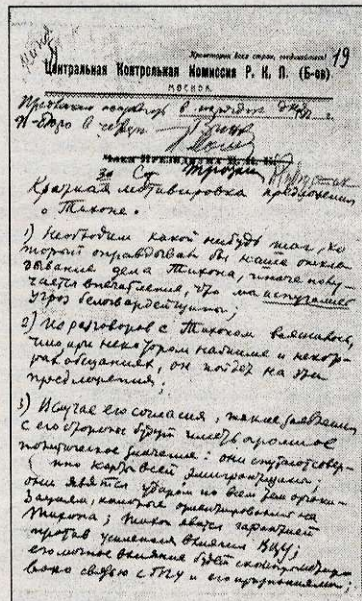 19
Пролетарии всех стран, соединяйтесь!
Центральная Контрольная Комиссия Р. К. П. (Б-ов)
МОСКВА
П-бюро
За Ст Троцкий
Краткая мотивировка предложения
о Тихоне.
1) Необходим какой нибудь шаг, ко
торый оправдывал бы наше откла
дывание дела Тихона, иначе полу
чается впечатление, что мы испугались
угроз белогвардейщины;
2) Из разговоров с Тихоном выяснилось,
что при некотором нажиме и некото
рых обещаниях, он пойдет на эти
предложения;
3) В случае его согласия, такие заявления
с его стороны будут иметь огромное
политическое значение: они спутают совер
шенно карты всей эмигрантщины;
они явятся ударом по всем тем органи
зациям, которые ориентировались на
Тихона; Тихон явится гарантией
против усиления влияния ВЦУ;
его личное влияние будет скомпрометиро
вано связью с ГПУ и его признаниями;